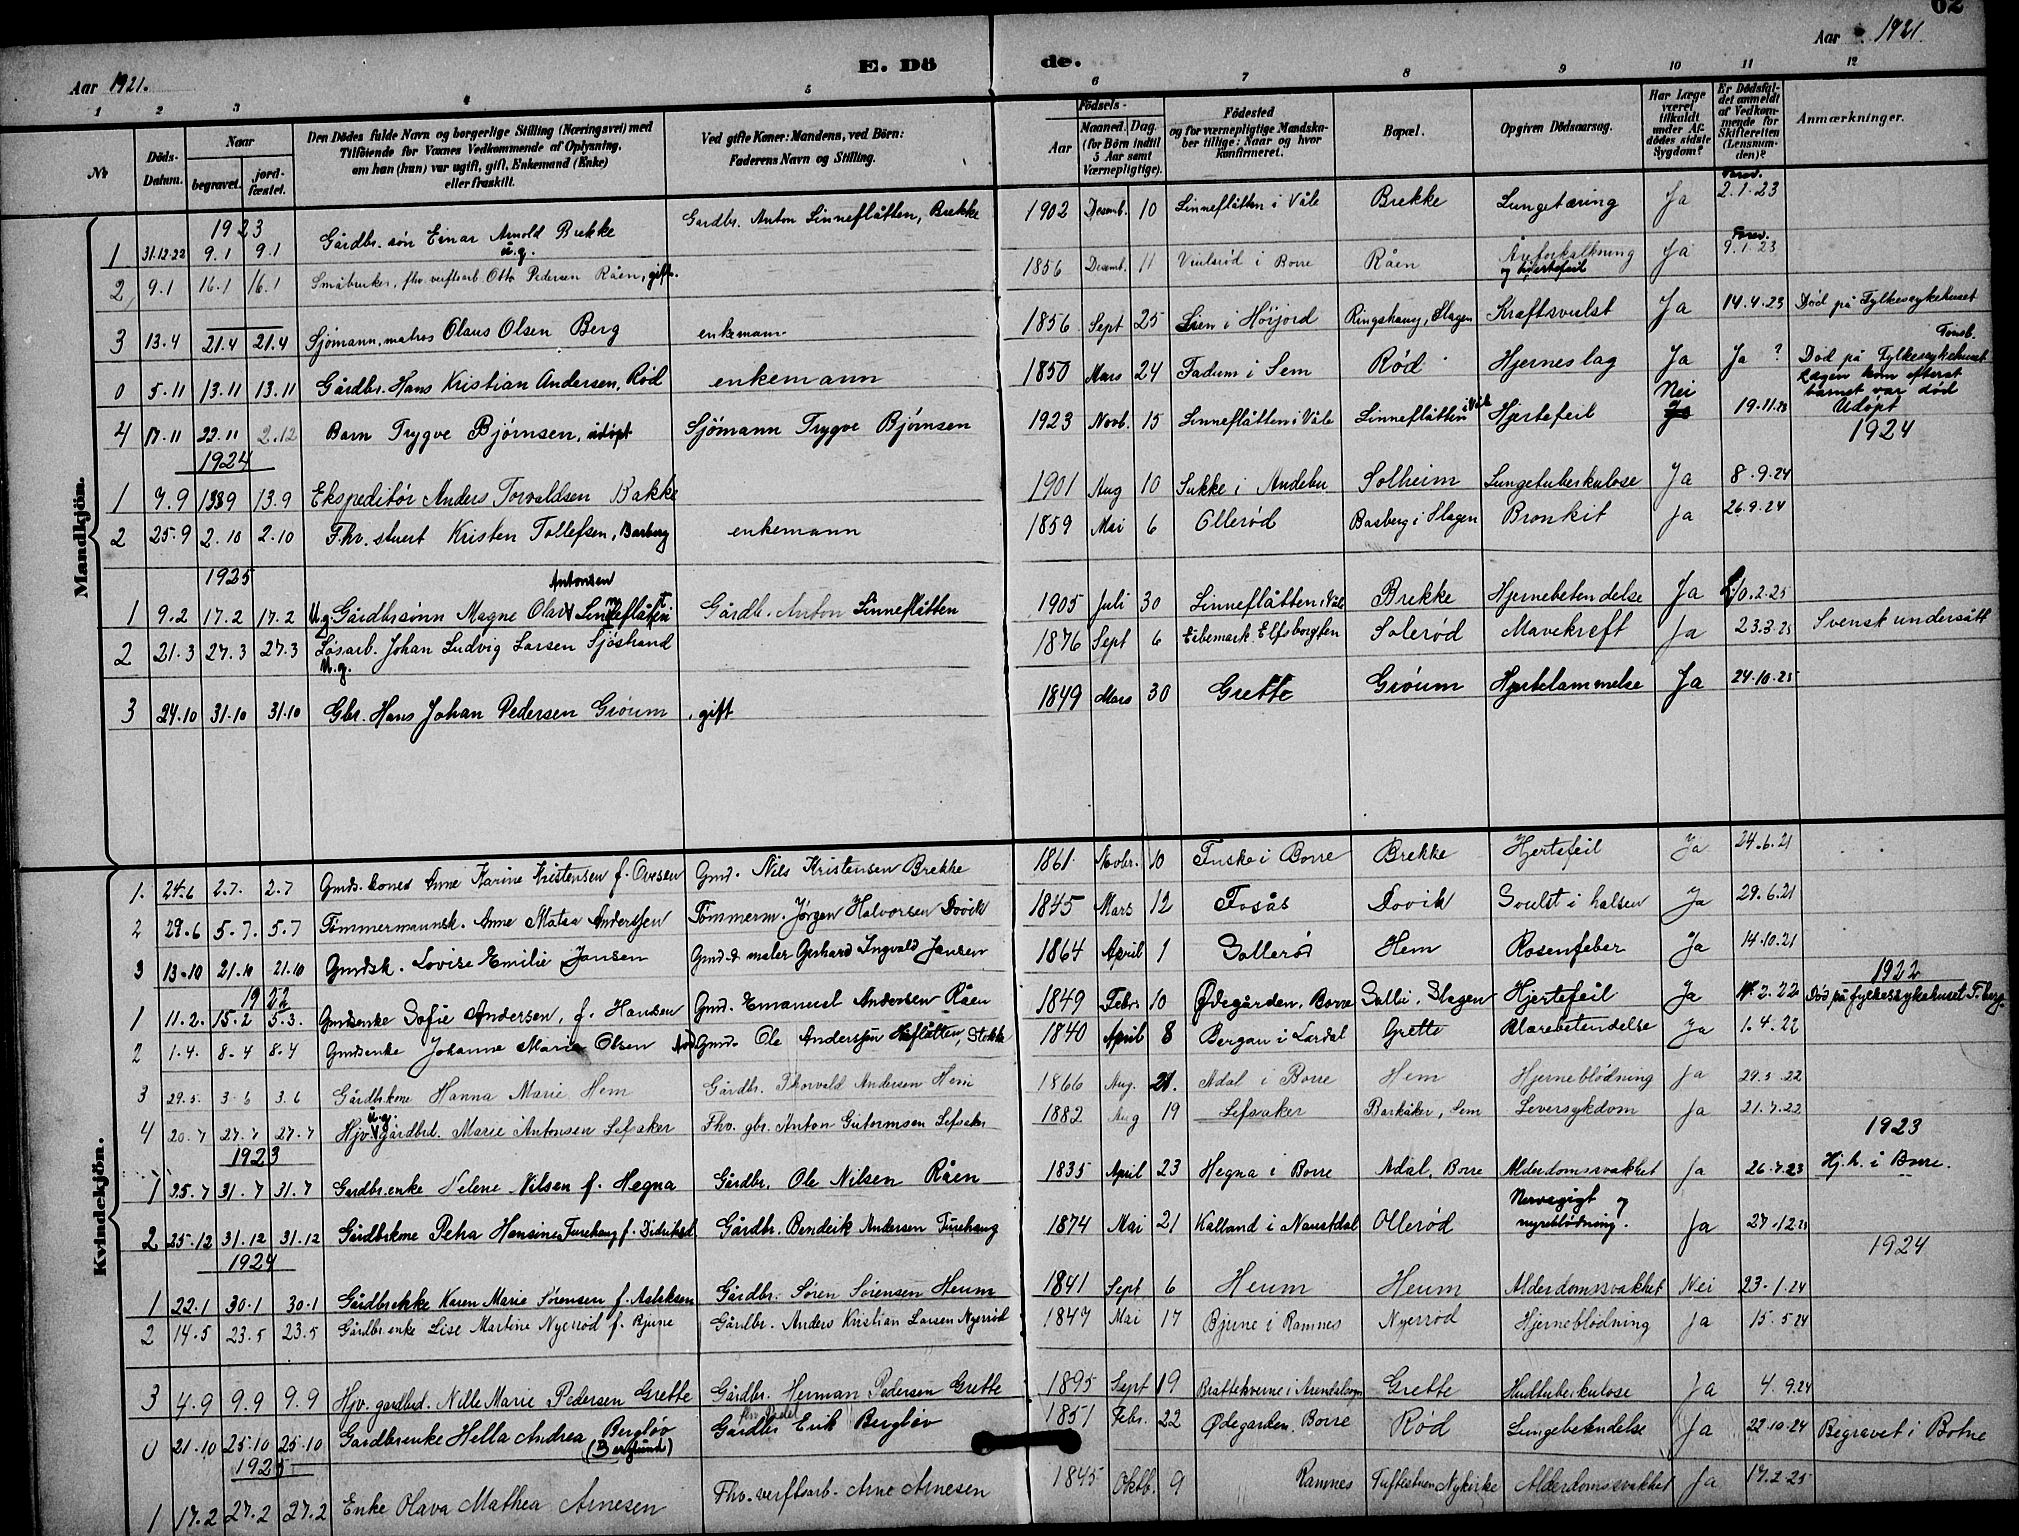 62
Aar 1921.
E. Dö de.
Aar 1921.
1 2 3 4 5 6 7 8 9 10 11 12
No
Döds-Datum.
Naar begravet. jord-fæstet.
Den Dödes fulde Navn og borgerlige Stilling (Næringsvei) med Tilföiende for Voxnes Vedkommende af Oplysning, om han (hun) var ugift, gift, Enkemand (Enke) eller fraskilt.
Ved gifte Koner: Mandens, ved Börn: Faderens Navn og Stilling.
Födsels- Aar Maaned. Dag. (for Börn indtil 5 Aar samt Værnepligtige).
Födested og for værnepligtige Mandskaber tillige: Naar og hvor konfirmeret.
Bopæl.
Opgiven Dödsaarsag.
Har Læge været tilkaldt under Afdödes sidste Sygdom?
Er Dödsfaldet anmeldt af Vedkommende for Skifteretten (Lensmanden)?
Anmærkninger.
Mandkjön.
1923
1 31.12.22 9.1 9.1 Gårdbr. søn Einar Arnold Brekke u.g. Gardbr. Anton Linneflåtten, Brekke 1902 Desemb. 10 Linneflåtten i Våle Brekke Lungetæring Ja 2.1.23
2 9.1 16.1 16.1 Småbruker, fhv. verftsarb. Otto Pedersen Råen, gift. 1856 Desemb. 11 i Borre Råen Åreforkalkning og hjertefeil Ja 9.1.23
3 13.4 21.4 21.4 Sjømann, matros Olaus Olsen Berg enkemann 1856 Sept 25 Lien i Høijord Ringshaug, Slagen Kraftsvulst Ja 14.4.23 Død på Fylkessykehuset
0 5.11 13.11 13.11 Gårdbr. Hans Kristian Andersen, Rød enkemann 1850 Mars 24 Fadum i Sem Rød Hjerneslag Ja Ja ? Død på Fylkessykehuset Tønsb.
4 17.11 22.11 2.12 Barn Trygve Bjørnsen, udøpt Sjømann Trygve Bjørnsen 1923 Novb. 15 Linneflåtten i Våle Linneflåtten i Våle Hjertefeil Nei Ja 19.11.23 Lægen kom efterat barnet var død Udøpt
1924
1924
1 7.9 13.9 13.9 Ekspeditør Anders Torvaldsen Bakke 1901 Aug 10 Sukke i Andebu Solheim Lungetuberkulose Ja 8.9.24
2 25.9 2.10 2.10 Fhv. stuert Kristen Tollefsen, Basberg enkemann 1859 Mai 6 Ollerød Basberg i Slagen Bronkit Ja 26.9.24
1925
1 9.2 17.2 17.2 U.g. Gårdbrsønn Magne Olav Antonsen Linneflåtten Gårdb. Anton Linneflåtten 1905 Juli 30 Linneflåtten i Våle Brekke Hjernebetendelse Ja 10.2.25
2 21.3 27.3 27.3 Løsarb. Johan Ludvig Larsen Sjøstrand U.g. 1876 Sept 6 Solerød Mavekreft Ja 23.3.25 Svensk undersått
3 24.10 31.10 31.10 Gbr. Hans Johan Pedersen Grøum, gift 1849 Mars 30 Grette Grøum Hjertelammelse Ja 24.10.25
Kvindekjön.
1. 24.6 2.7. 2.7 Gmds. kones Anne Karine Kristensen f. Ovesen Gmd. Nils Kristensen Brekke 1861 Novbr. 10 i Borre Brekke Hjertefeil Ja 24.6.21
2 29.6 5.7. 5.7 Tømmermannsk. Anne Matea Anderssen Tømmerm. Jørgen Halvorsen Dovik 1845 Mars 12 Fosås Dovik Svulst i halsen Ja 29.6.21
3 13.10 21.10 21.10 Gmdsk. Lovise Emilie Jansen Gmd. & maler Gerhard Ingvald Jansen 1864 April 1 Sollerød Hem Rosenfeber Ja 14.10.21
1922
1922
1 11.2. 15.2 5.3. Gmdsenke Sofie Andersen, f. Hansen Gmd. Emanuel Andersen Råen 1849 Febr. 10 Ødegården, Borre Solli, Slagen Hjertefeil Ja 11.2.22 Død på fylkessykehuset T.berg.
2 1.4. 8.4 8.4 Gmdsenke Johanne Marie Olsen Gmd. Ole Anderssen Hesflåtten, Stokke 1840 April 8 Bergan i Lardal Grette Blærebetendelse Ja 1.4.22
3 29.5. 3.6 3.6 Gårdbrkone Hanna Marie Hem Gårdbr. Thorvald Andersen Hem 1866 Aug. 21. Adal i Borre Hem Hjerneblødning Ja 29.5.22
4 20.7 27.7 27.7 Hjv. u.g. gårdbrd. Marie Antonsen Lefsaker Fhv. gbr. Anton Gutormsen Lefsaker 1882 Aug 19 Lefsaker Barkåker, Sem Leversykdom Ja 21.7.22
1923
1923
1 25.7 31.7 31.7 Gardbr.enke Helene Nilsen f. Hegna Gårdbr. Ole Nilsen Råen 1835 April 23 Hegna i Borre Adal, Borre Alderdomssvakhet Ja 26.7.23 Hj.h. i Borre.
2 25.12 31.12 31.12 Gårdbrkone Petra Hansine Furehaug f. Gårdbr. Bendik Andersen Furehaug 1874 Mai 21 Kalland i Naustdal Ollerød Nervegigt og nyreblødning. Ja 27.12.23
1924
1924
1 22.1 30.1 30.1 Gårdbrekke Karen Marie Sørensen f. Aslaksen Gårdbr. Søren Sørensen Heum 1841 Sept 6 Heum Heum Alderdomssvakhet Nei 23.1.24
2 14.5 23.5 23.5 Gårdbr.enke Lise Martine Nyerrød f. Bjune Gårdbr. Anders Kristian Larsen Nyerrød 1847 Mai 17 Bjune i Ramnes Nyerrød Hjerneblødning Ja 15.5.24
3 4.9 9.9 9.9 Hjv. gardbrd. Nille Marie Pedersen Grette Gårdbr. Herman Pedersen Grette 1895 Sept 19 Grette Hudtuberkulose Ja 4.9.24
0 21.10 25.10 25.10 Gardbrenke Hella Andrea Bergløv (Berglund) Gårdbr Erik Bergløv 1851 Febr. 22 Ødegarden, Borre Rød Lungebetendelse Ja 22.10.24 Begravet i Botne
1925
1 17.2 27.2 27.2 Enke Olava Mathea Arnesen Fhv. verftsarb. Arne Arnesen 1845 Oktb. 9 Ramnes Tuftestuen Nykirke Alderdomssvakhet Ja 17.2.25